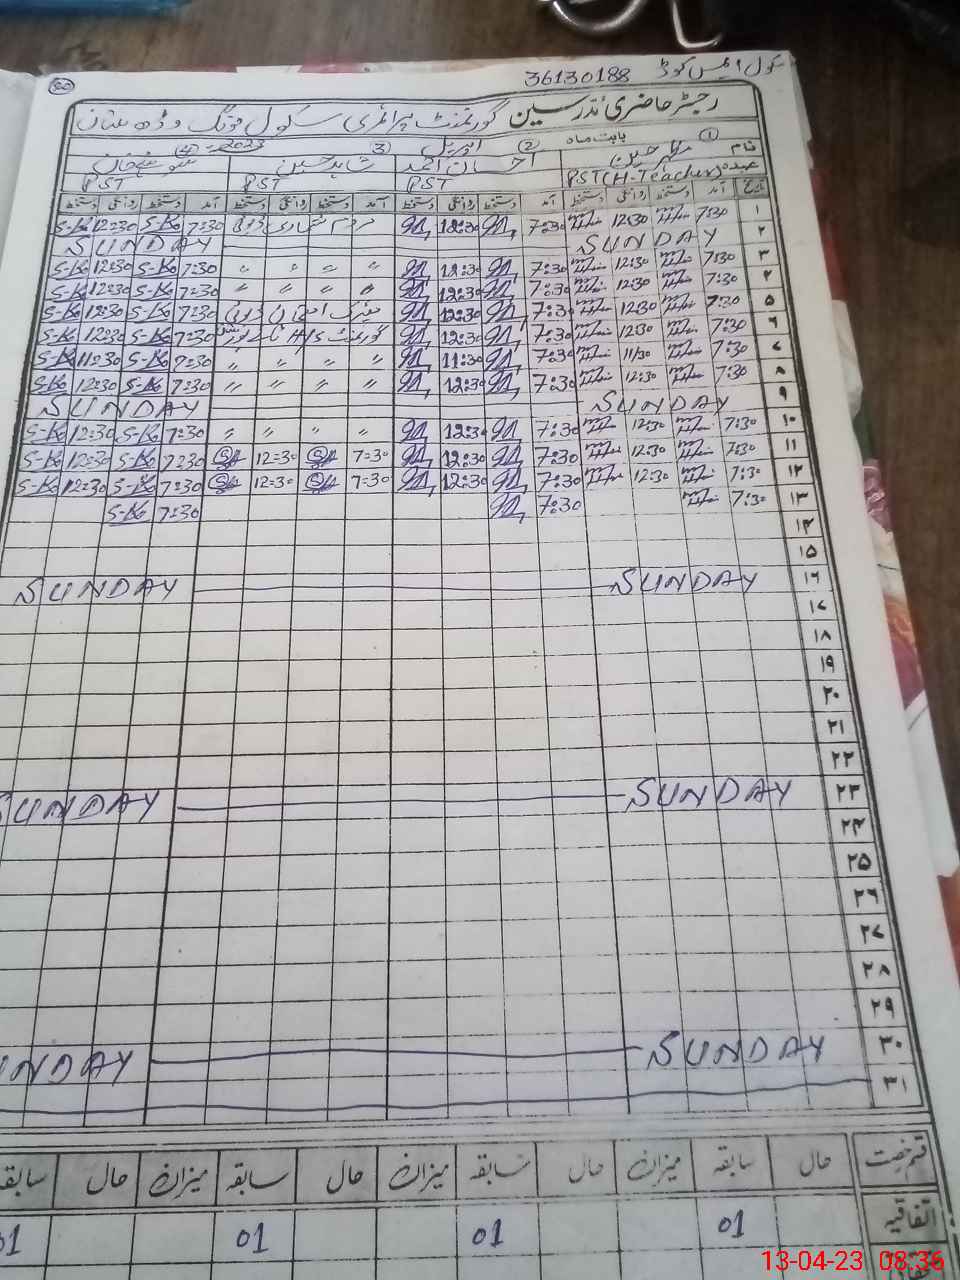 سکول ایمس کوڈ 36130188
رجسٹر حاضری مدرسین گورنمنٹ پرائمری سکول
بابت ماہ اپریل 2023
نام ① ② احسان احمد ③ شاہد حسین ④
عہدہ PST(H-Teacher) PST PST PST
تاریخ آمد دستخط روانگی دستخط آمد دستخط روانگی دستخط آمد دستخط روانگی دستخط آمد دستخط روانگی دستخط
۱ 7:30 12:30 7:30 12:30 مردم شماری ڈیوٹی 7:30 S-K 12:30 S-K
۲ SUNDAY SUNDAY
۳ 7:30 12:30 7:30 12:30 〃 〃 〃 〃 7:30 S-K 12:30 S-K
۴ 7:30 12:30 7:30 12:30 〃 〃 〃 〃 7:30 S-K 12:30 S-K
۵ 7:30 12:30 7:30 12:30 میٹرک امتحان ڈیوٹی 7:30 S-K 12:30 S-K
۶ 7:30 12:30 7:30 12:30 گورنمنٹ H/S 7:30 S-K 12:30 S-K
۷ 7:30 11:30 7:30 11:30 〃 〃 〃 〃 7:30 S-K 11:30 S-K
۸ 7:30 12:30 7:30 12:30 〃 〃 〃 〃 7:30 S-K 12:30 S-K
۹ SUNDAY SUNDAY
۱۰ 7:30 12:30 7:30 12:30 〃 〃 〃 〃 7:30 S-K 12:30 S-K
۱۱ 7:30 12:30 7:30 12:30 7:30 12:30 7:30 S-K 12:30 S-K
۱۲ 7:30 12:30 7:30 12:30 7:30 12:30 7:30 S-K 12:30 S-K
۱۳ 7:30 7:30 7:30 S-K
۱۴
۱۵
۱۶ SUNDAY SUNDAY
۱۷
۱۸
۱۹
۲۰
۲۱
۲۲
۲۳ SUNDAY SUNDAY
۲۴
۲۵
۲۶
۲۷
۲۸
۲۹
۳۰ SUNDAY SUNDAY
۳۱
قسم رخصت حال سابقہ میزان حال سابقہ میزان حال سابقہ میزان حال سابقہ
اتفاقیہ 01 01 01 01
13-04-23 08:36